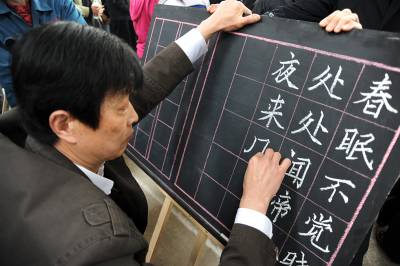 春眠不觉
处处闻啼
夜来